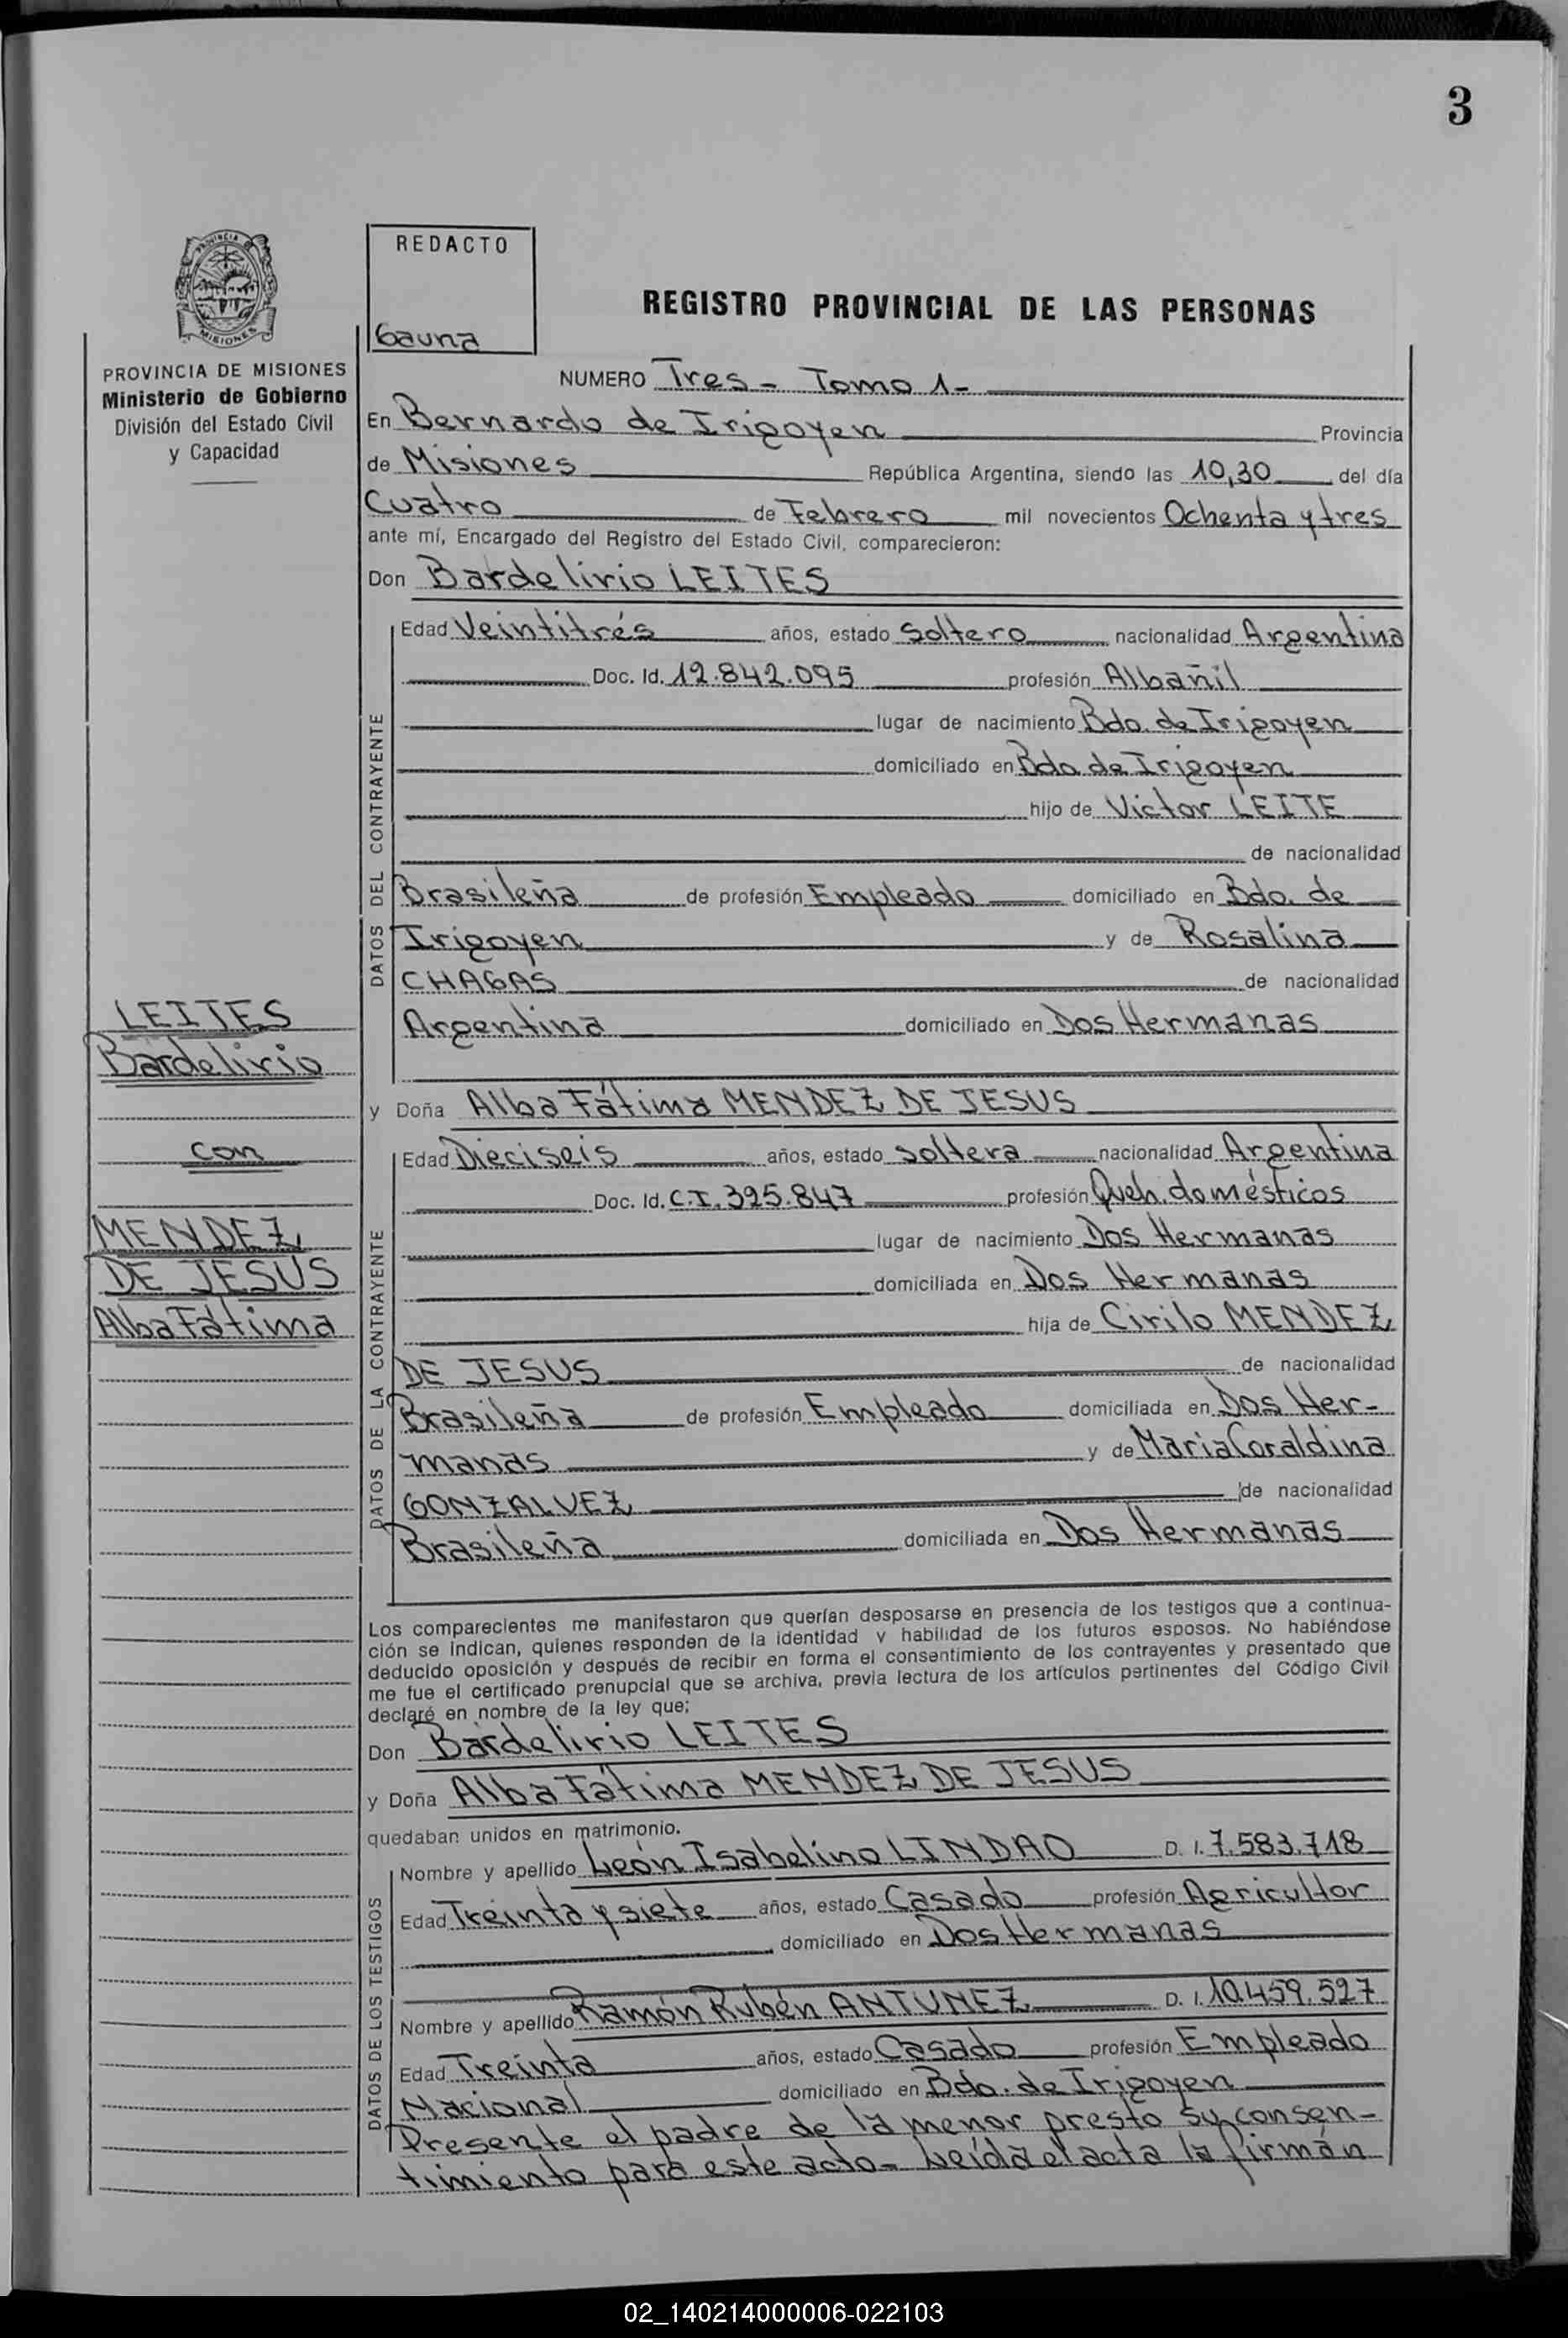 3
PROVINCIA DE
MISIONES
PROVINCIA DE MISIONES
Ministerio de Gobierno
División del Estado Civil
y Capacidad
REDACTO
Gauna
REGISTRO PROVINCIAL DE LAS PERSONAS
NUMERO Tres - Tomo 1-
En Bernardo de Irigoyen Provincia
de Misiones República Argentina, siendo las 10,30 del día
Cuatro de Febrero mil novecientos Ochenta y tres
ante mí, Encargado del Registro del Estado Civil, comparecieron:
Don Bardelirio LEITES
DATOS DEL CONTRAYENTE
Edad Veintitrés años, estado Soltero nacionalidad Argentina
Doc. Id. 12.842.095 profesión Albañil
lugar de nacimiento Bdo. de Irigoyen
domiciliado en Bdo. de Irigoyen
hijo de Victor LEITE
de nacionalidad
Brasileña de profesión Empleado domiciliado en Bdo. de
Irigoyen y de Rosalina
CHAGAS de nacionalidad
Argentina domiciliado en Dos Hermanas
LEITES
Bardelirio
con
MENDEZ
DE JESUS
Alba Fátima
y Doña Alba Fátima MENDEZ DE JESUS
DATOS DE LA CONTRAYENTE
Edad Dieciseis años, estado soltera nacionalidad Argentina
Doc. Id. C.I. 395.847 profesión Queh. domésticos
lugar de nacimiento Dos Hermanas
domiciliada en Dos Hermanas
hija de Cirilo MENDEZ
DE JESUS de nacionalidad
Brasileña de profesión Empleado domiciliada en Dos Her-
manas y de Maria Coraldina
GONZALVEZ de nacionalidad
Brasileña domiciliada en Dos Hermanas
Los comparecientes me manifestaron que querían desposarse en presencia de los testigos que a continua-
ción se indican, quienes responden de la identidad y habilidad de los futuros esposos. No habiéndose
deducido oposición y después de recibir en forma el consentimiento de los contrayentes y presentado que
me fue el certificado prenupcial que se archiva, previa lectura de los artículos pertinentes del Código Civil
declaré en nombre de la ley que;
Don Bardelirio LEITES
y Doña Alba Fátima MENDEZ DE JESUS
quedaban unidos en matrimonio.
DATOS DE LOS TESTIGOS
Nombre y apellido León Isabelino LINDAO D. I. 7.583.718
Edad Treinta y siete años, estado Casado profesión Agricultor
domiciliado en Dos Hermanas
Nombre y apellido Ramón Rubén ANTUNEZ D. I. 10.459.527
Edad Treinta años, estado Casado profesión Empleado
Nacional domiciliado en Bdo. de Irigoyen
Presente el padre de la menor presto su consen-
timiento para este acto - Leída el acta la firmán
02_140214000006-022103